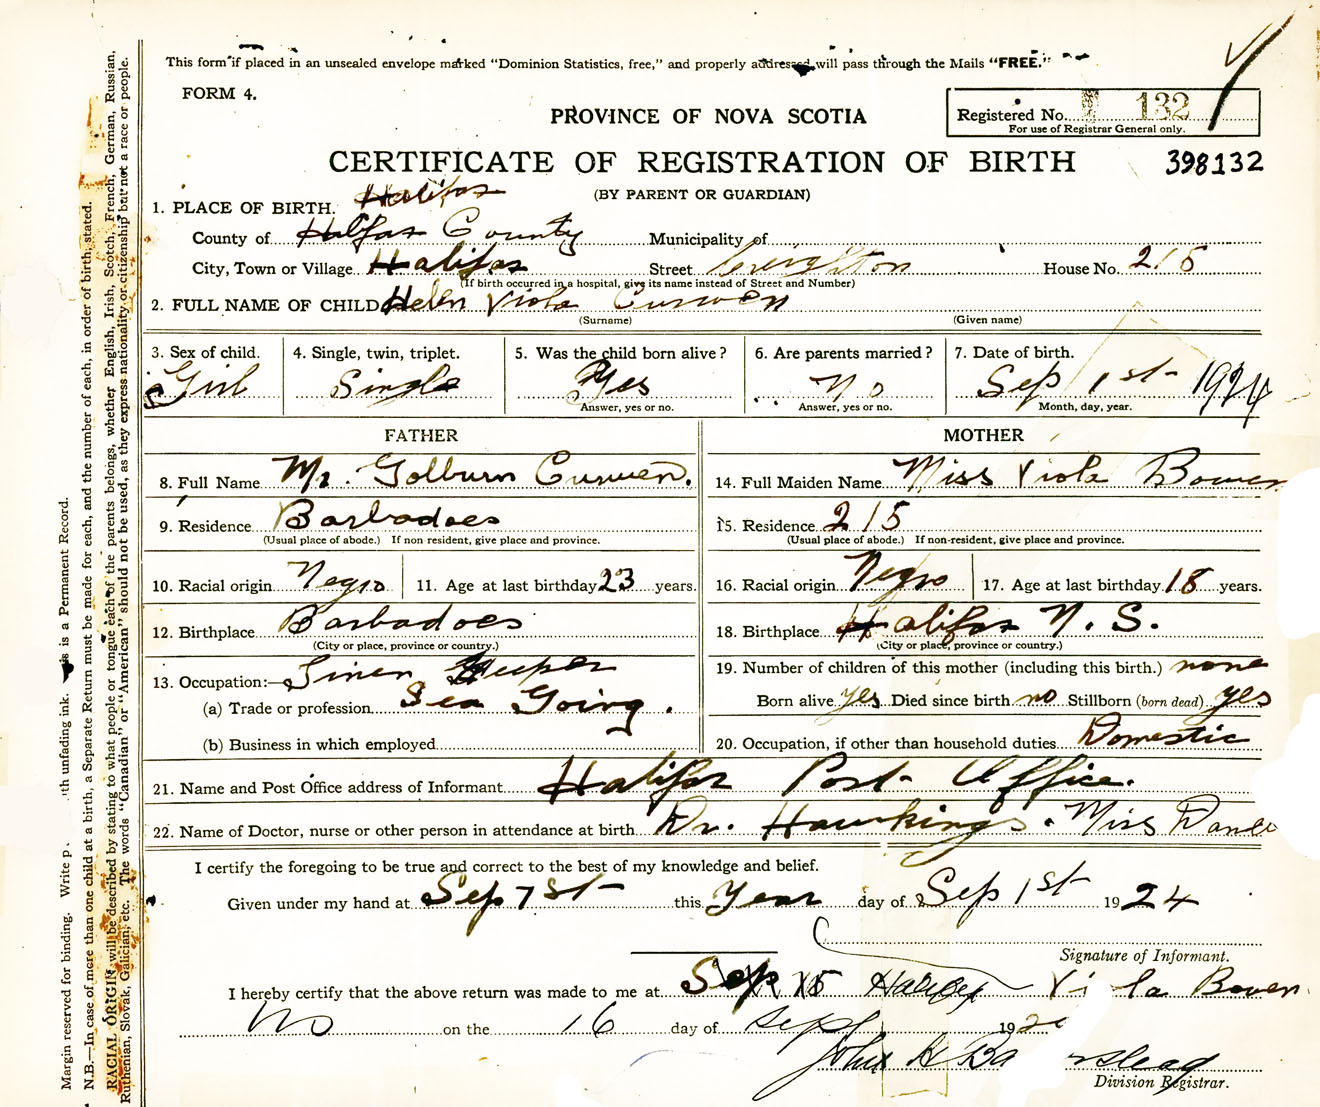 This form if placed in an unsealed envelope marked "Dominion Statistics, free," and properly addressed, will pass through the Mails "FREE."
FORM 4.
PROVINCE OF NOVA SCOTIA
Registered No. 132
For use of Registrar General only.
CERTIFICATE OF REGISTRATION OF BIRTH
398132
(BY PARENT OR GUARDIAN)
Halifax
1. PLACE OF BIRTH.
County of Halfax County Municipality of
City, Town or Village Halifax Street Creighton House No. 215
(If birth occurred in a hospital, give its name instead of Street and Number)
2. FULL NAME OF CHILD Helen Viola Curwen
(Surname) (Given name)
3. Sex of child. 4. Single, twin, triplet. 5. Was the child born alive? 6. Are parents married? 7. Date of birth.
Girl Single Yes No Sep 1st 1924
Answer, yes or no. Answer, yes or no. Month, day, year.
FATHER MOTHER
8. Full Name Mr. Golburn Curwen. 14. Full Maiden Name Miss Viola Bowen
9. Residence Barbadoes 15. Residence 215
(Usual place of abode.) If non resident, give place and province. (Usual place of abode.) If non-resident, give place and province.
10. Racial origin Negro 11. Age at last birthday 23 years. 16. Racial origin Negro 17. Age at last birthday 18 years.
12. Birthplace Barbadoes 18. Birthplace Halifax N. S.
(City or place, province or country.) (City or place, province or country.)
13. Occupation:— Linen Keeper 19. Number of children of this mother (including this birth.) none
(a) Trade or profession Sea Going. Born alive yes Died since birth no Stillborn (born dead) yes
(b) Business in which employed 20. Occupation, if other than household duties Domestic
21. Name and Post Office address of Informant Halifax Post Office.
22. Name of Doctor, nurse or other person in attendance at birth Dr. Hawkings. Miss
I certify the foregoing to be true and correct to the best of my knowledge and belief.
Given under my hand at Sep 7st this Year day of Sep 1st 1924
Signature of Informant.
I hereby certify that the above return was made to me at Sep Halifax Viola Bowen
on the 16 day of Sept 192
John H
Division Registrar.
Margin reserved for binding. Write is a Permanent Record.
N.B.—In case of more than one child at a birth, a Separate Return must be made for each, and the number of each, in order of birth, stated.
RACIAL ORIGIN will be described by stating to what people or tongue each of the parents belongs, whether English, Irish, Scotch, French, German, Russian,
Ruthenian, Slovak, Galician, etc. The words "Canadian" or "American" should not be used, as they express nationality or citizenship but not a race or people.